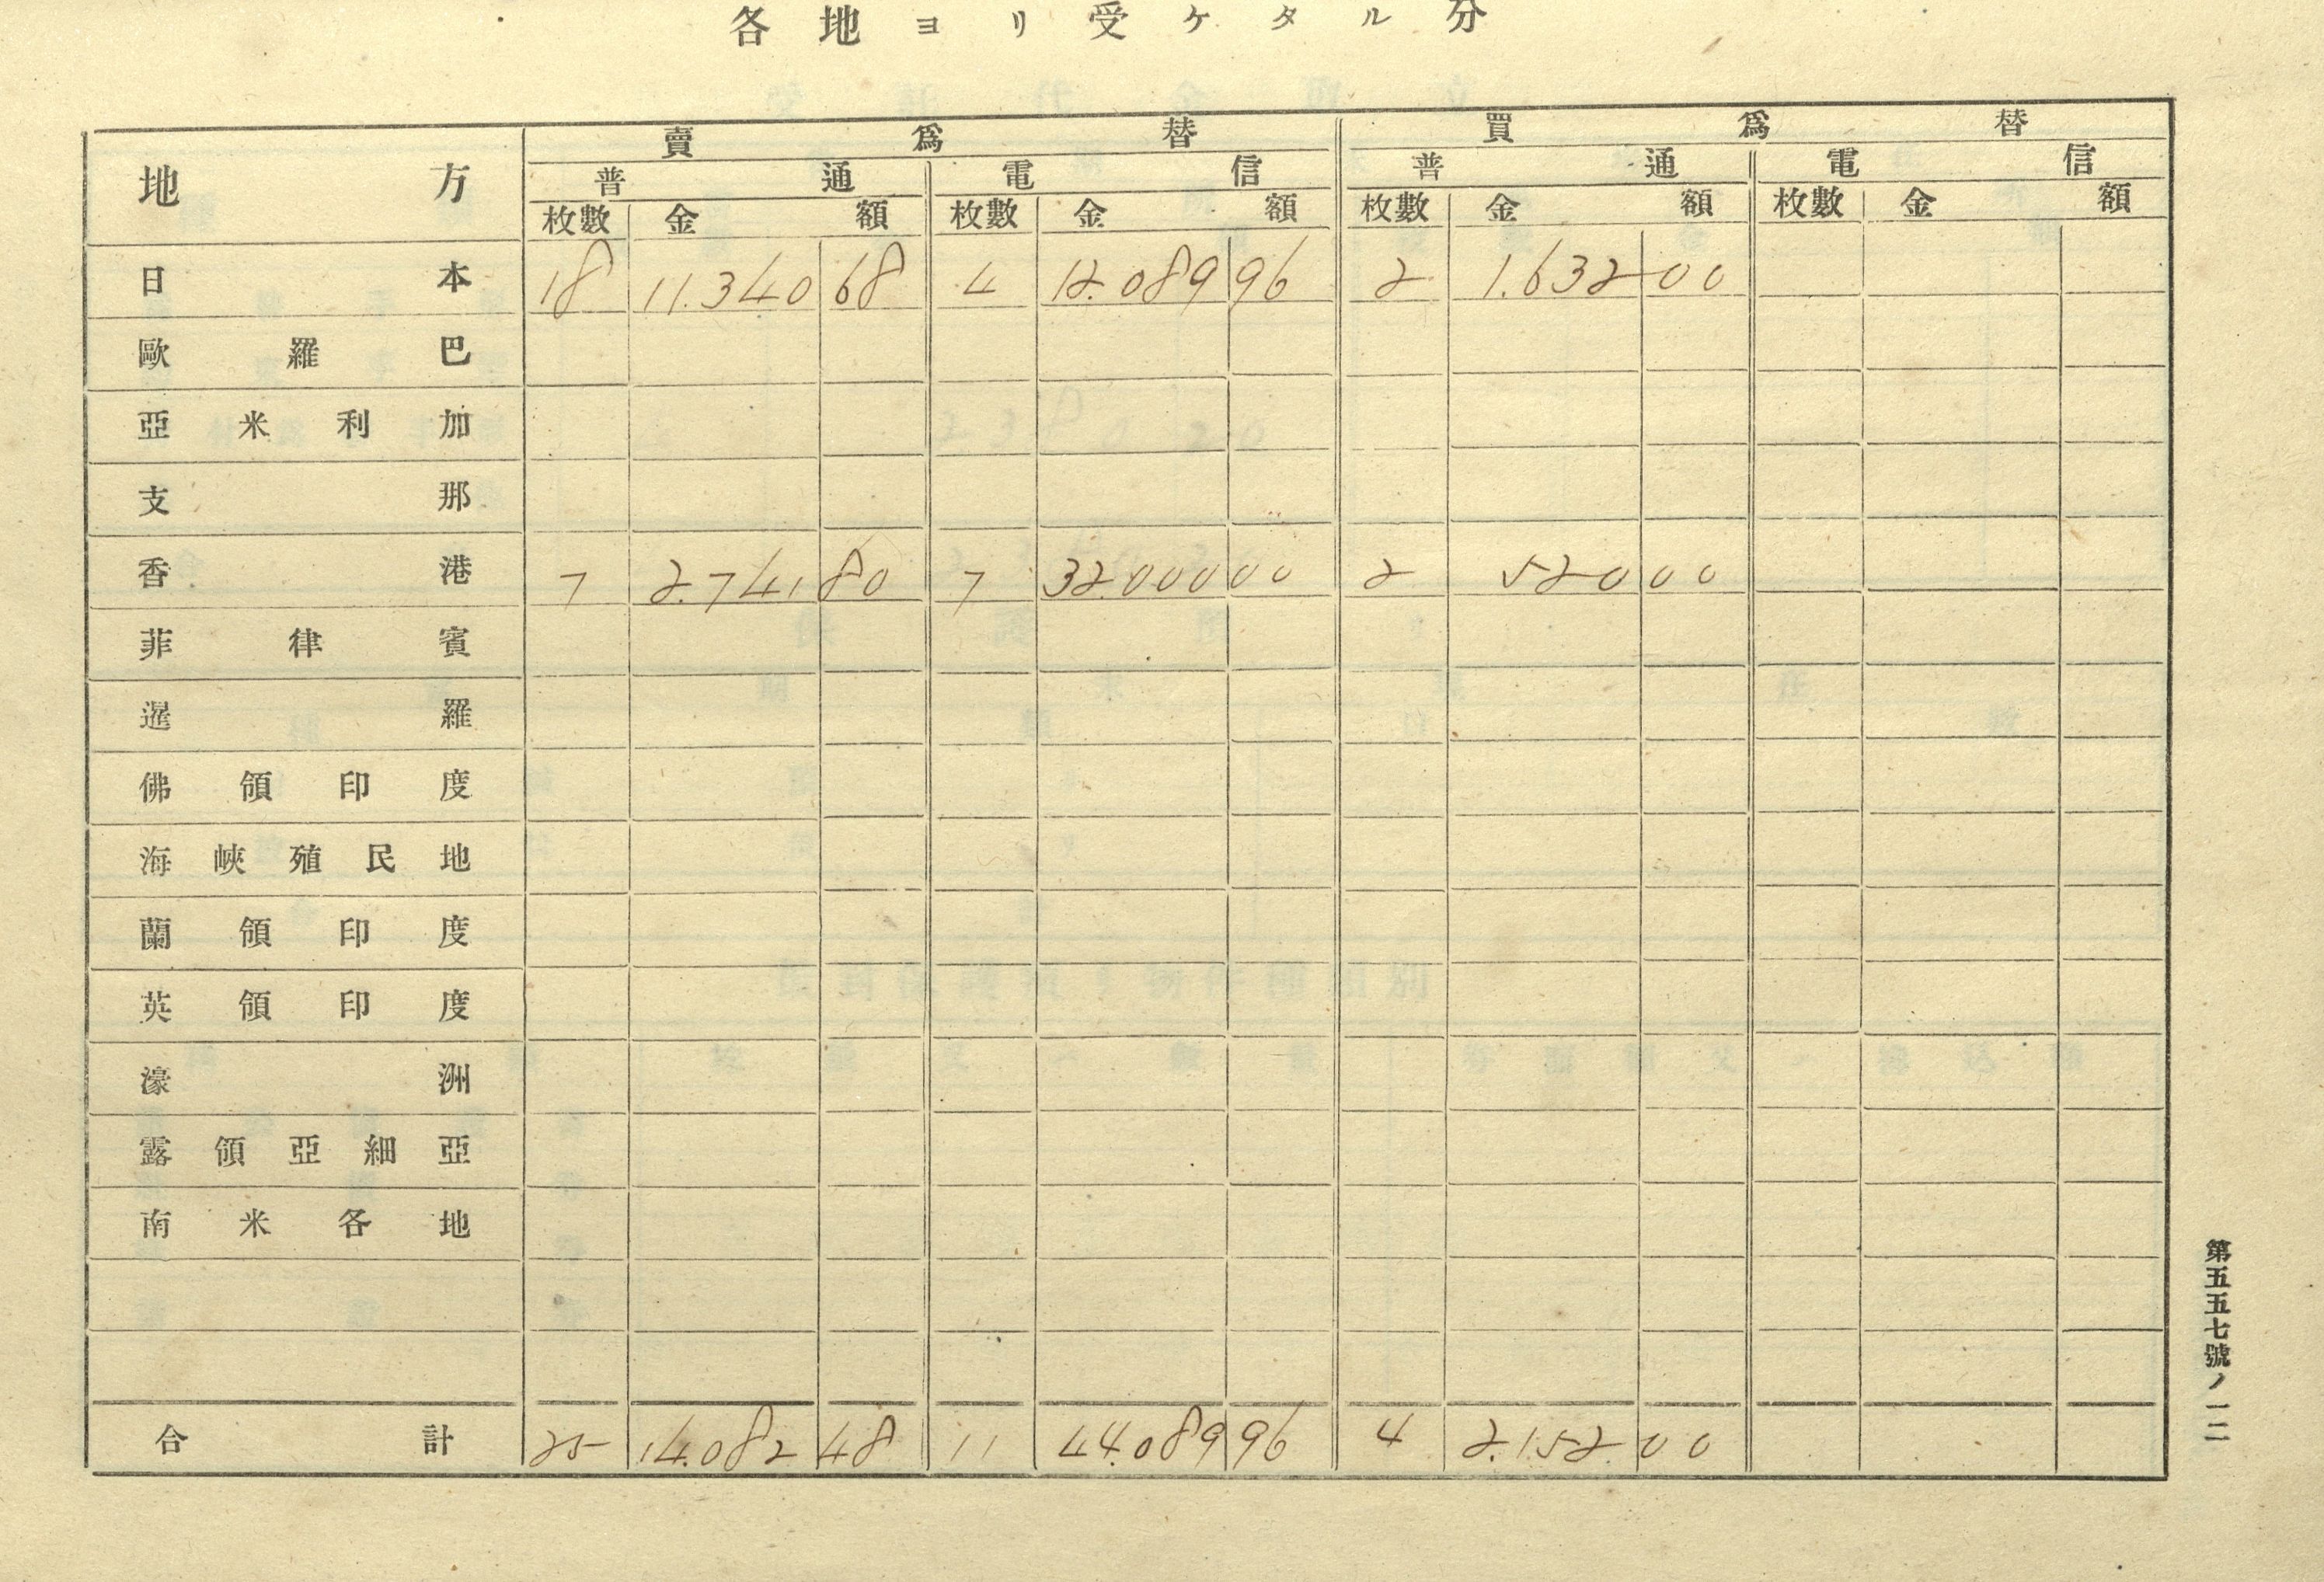 各地ヨリ受ケタル分
地方 賣爲替 買爲替
普通 電信 普通 電信
枚數 金額 枚數 金額 枚數 金額 枚數 金額
日本 18 11.340 68 4 12.089 96 2 1.632 00
歐羅巴
亞米利加
支那
香港 7 2.741 80 7 32.000 00 2 520 00
菲律賓
暹羅
佛領印度
海峽殖民地
蘭領印度
英領印度
濠洲
露領亞細亞
南米各地
合計 25 14.082 48 11 44.089 96 4 2.152 00
第五五七號ノ一二